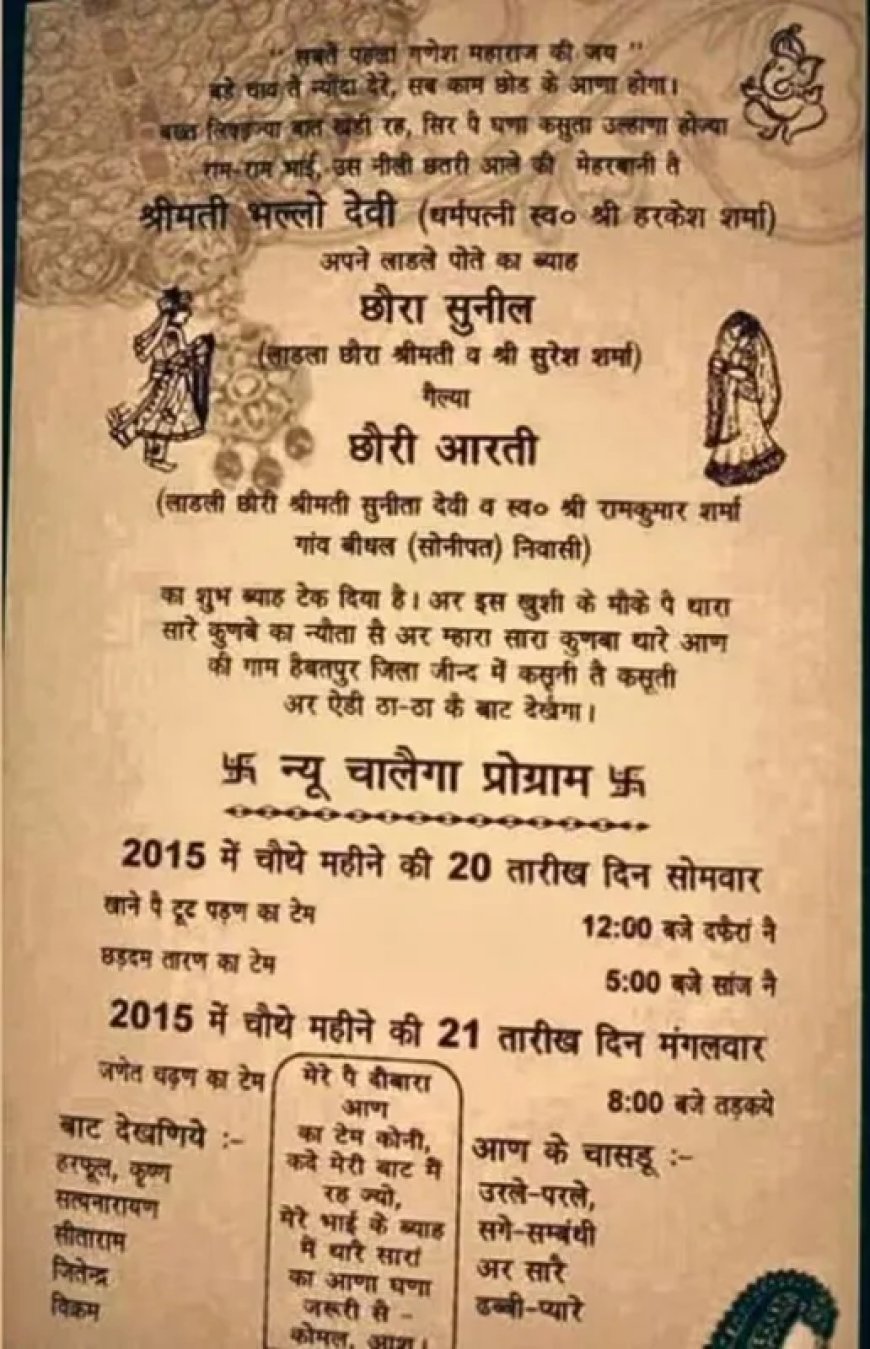 " सबतै पहला गणेश महाराज की जय "
बडे चाव तै न्यौंदा देरे, सब काम छोड के आणा होगा।
बख्त लिकड़ज्या बात खडी रह, सिर पै घणा कसुता उल्हाणा होज्या
राम-राम भाई, उस नीली छतरी आले की मेहरबानी तै
श्रीमती भल्लो देवी (धर्मपत्नी स्व० श्री हरकेश शर्मा)
अपने लाडले पोते का ब्याह
छौरा सुनील
(लाडला छौरा श्रीमती व श्री सुरेश शर्मा)
गैल्या
छौरी आरती
(लाडली छौरी श्रीमती सुनीता देवी व स्व० श्री रामकुमार शर्मा
गांव बीधल (सोनीपत) निवासी)
का शुभ ब्याह टेक दिया है। अर इस खुशी के मौके पै थारा
सारे कुणबे का न्यौता सै अर म्हारा सारा कुणबा थारे आण
की गाम हैबतपुर जिला जीन्द में कसूती तै कसूती
अर ऐडी ठा-ठा कै बाट देखैगा।
卐 न्यू चालैगा प्रोग्राम 卐
2015 में चौथे महीने की 20 तारीख दिन सोमवार
खाने पै टूट पड़ण का टेम 12:00 बजे दफैरां नै
छड़दम तारण का टेम 5:00 बजे सांज नै
2015 में चौथे महीने की 21 तारीख दिन मंगलवार
जणेत चढ़ण का टेम 8:00 बजे तड़कये
मेरे पै दीबारा
आण
का टेम कोनी,
कदे मेरी बाट मैं
रह ज्यो,
मेरे भाई के ब्याह
में थारै सारां
का आणा घणा
जरूरी सै -
कोमल, आशु।
बाट देखणिये :-
हरफूल, कृष्ण
सत्यनारायण
सीताराम
जितेन्द्र
विक्रम
आण के चासडू :-
उरले-परले,
सगे-सम्बंधी
अर सारै
ढब्बी-प्यारे